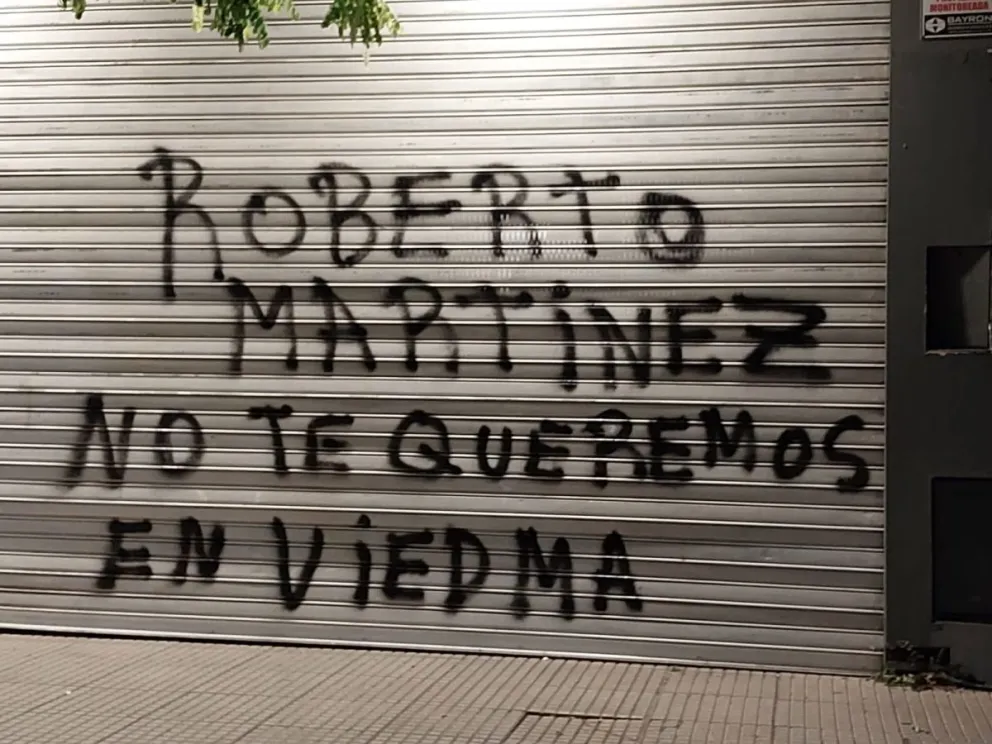 MONITOREADA
BAYRON
ROBERTO
MARTiNEZ
NO TE QUEREMOS
EN ViEDMA